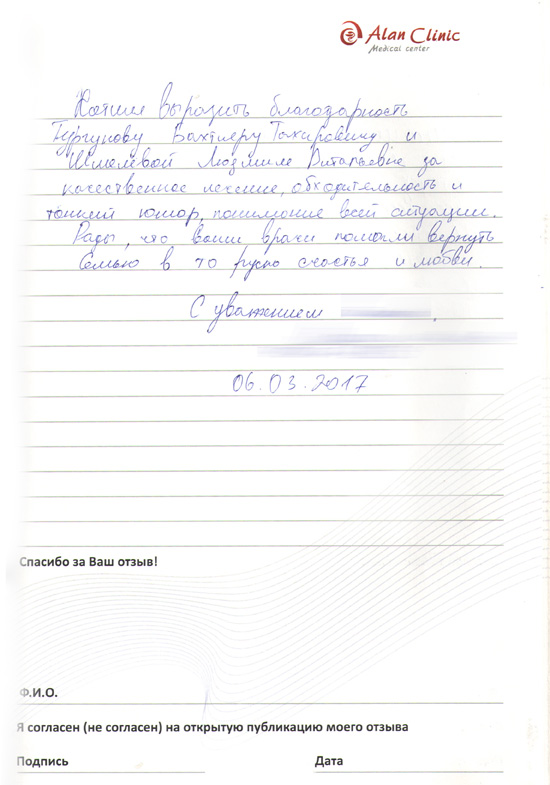 Alan Clinic
Medical center
Хотим выразить благодарность
Тургунову Бахтиеру Тахировичу и
Шмелевой Людмиле Витальевне за
качественное лечение, обходительность и
тонкий юмор, понимание всей ситуации.
Рады, что ваши врачи помогли вернуть
семью в то русло счастья и любви.
С уважением
06.03.2017
Спасибо за Ваш отзыв!
Ф.И.О.
Я согласен (не согласен) на открытую публикацию моего отзыва
Подпись Дата